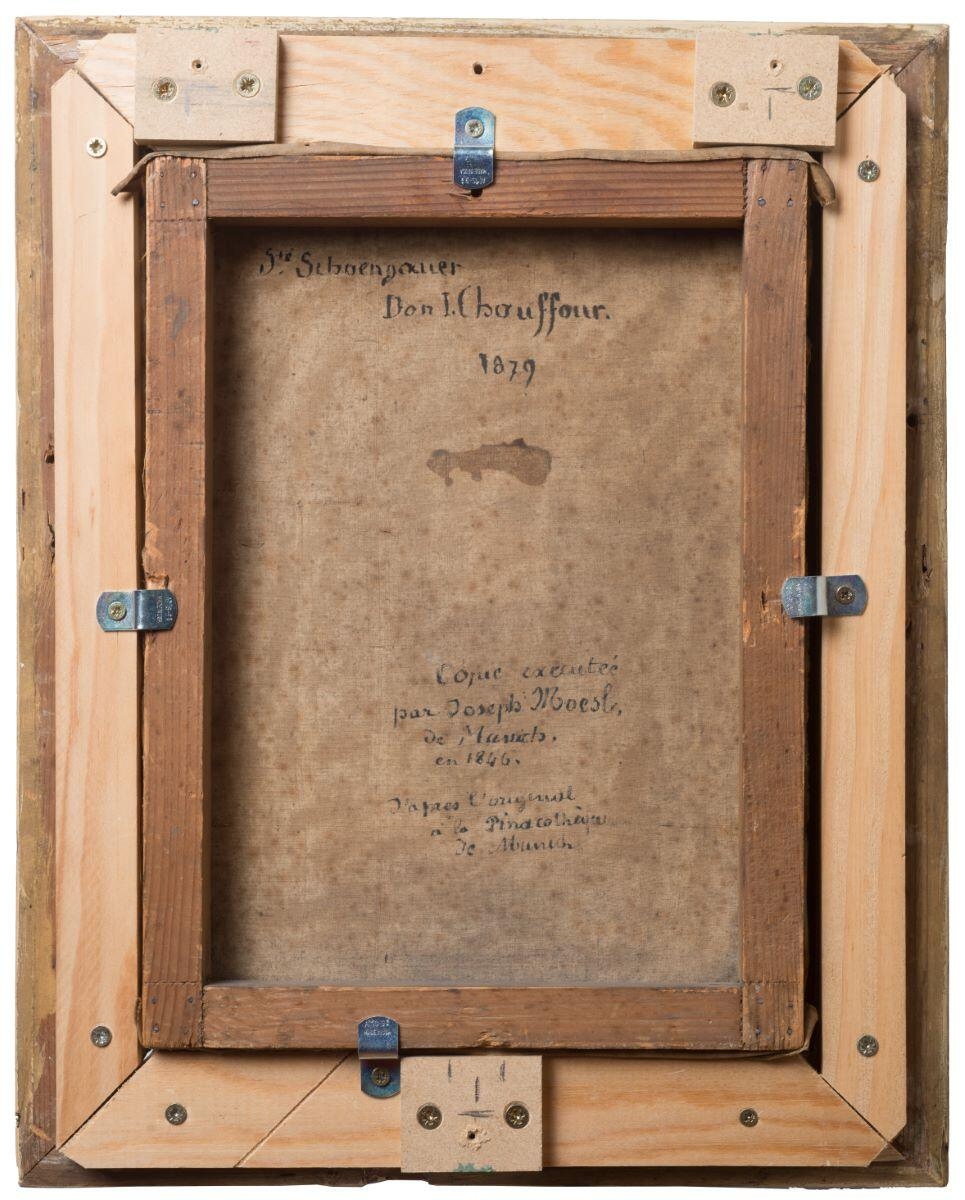 Sté Schoengauer
Don I. Chouffour.
1879
Copie executée
par Joseph Moesl,
de Munich.
en 1846.
d'apres l'original
à la Pinacothèque
de Munich